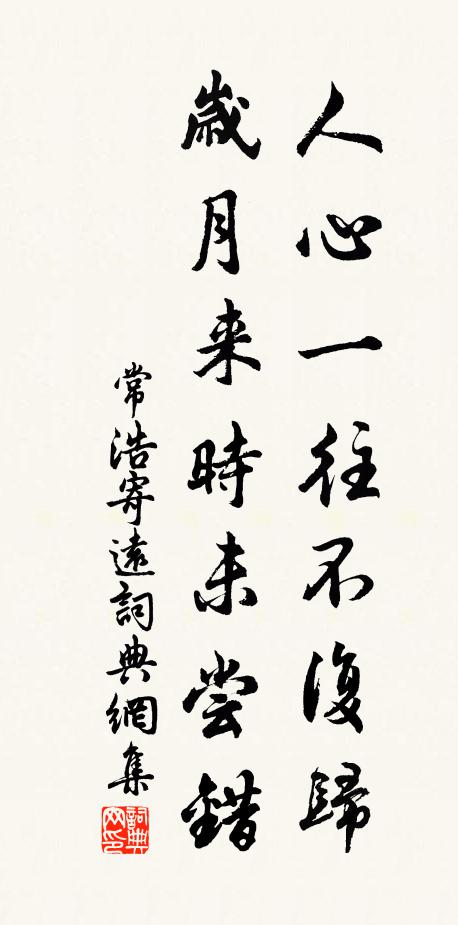 人心一往不復歸
歲月来時未嘗錯
常浩寄遠詞典網集
詞典网印